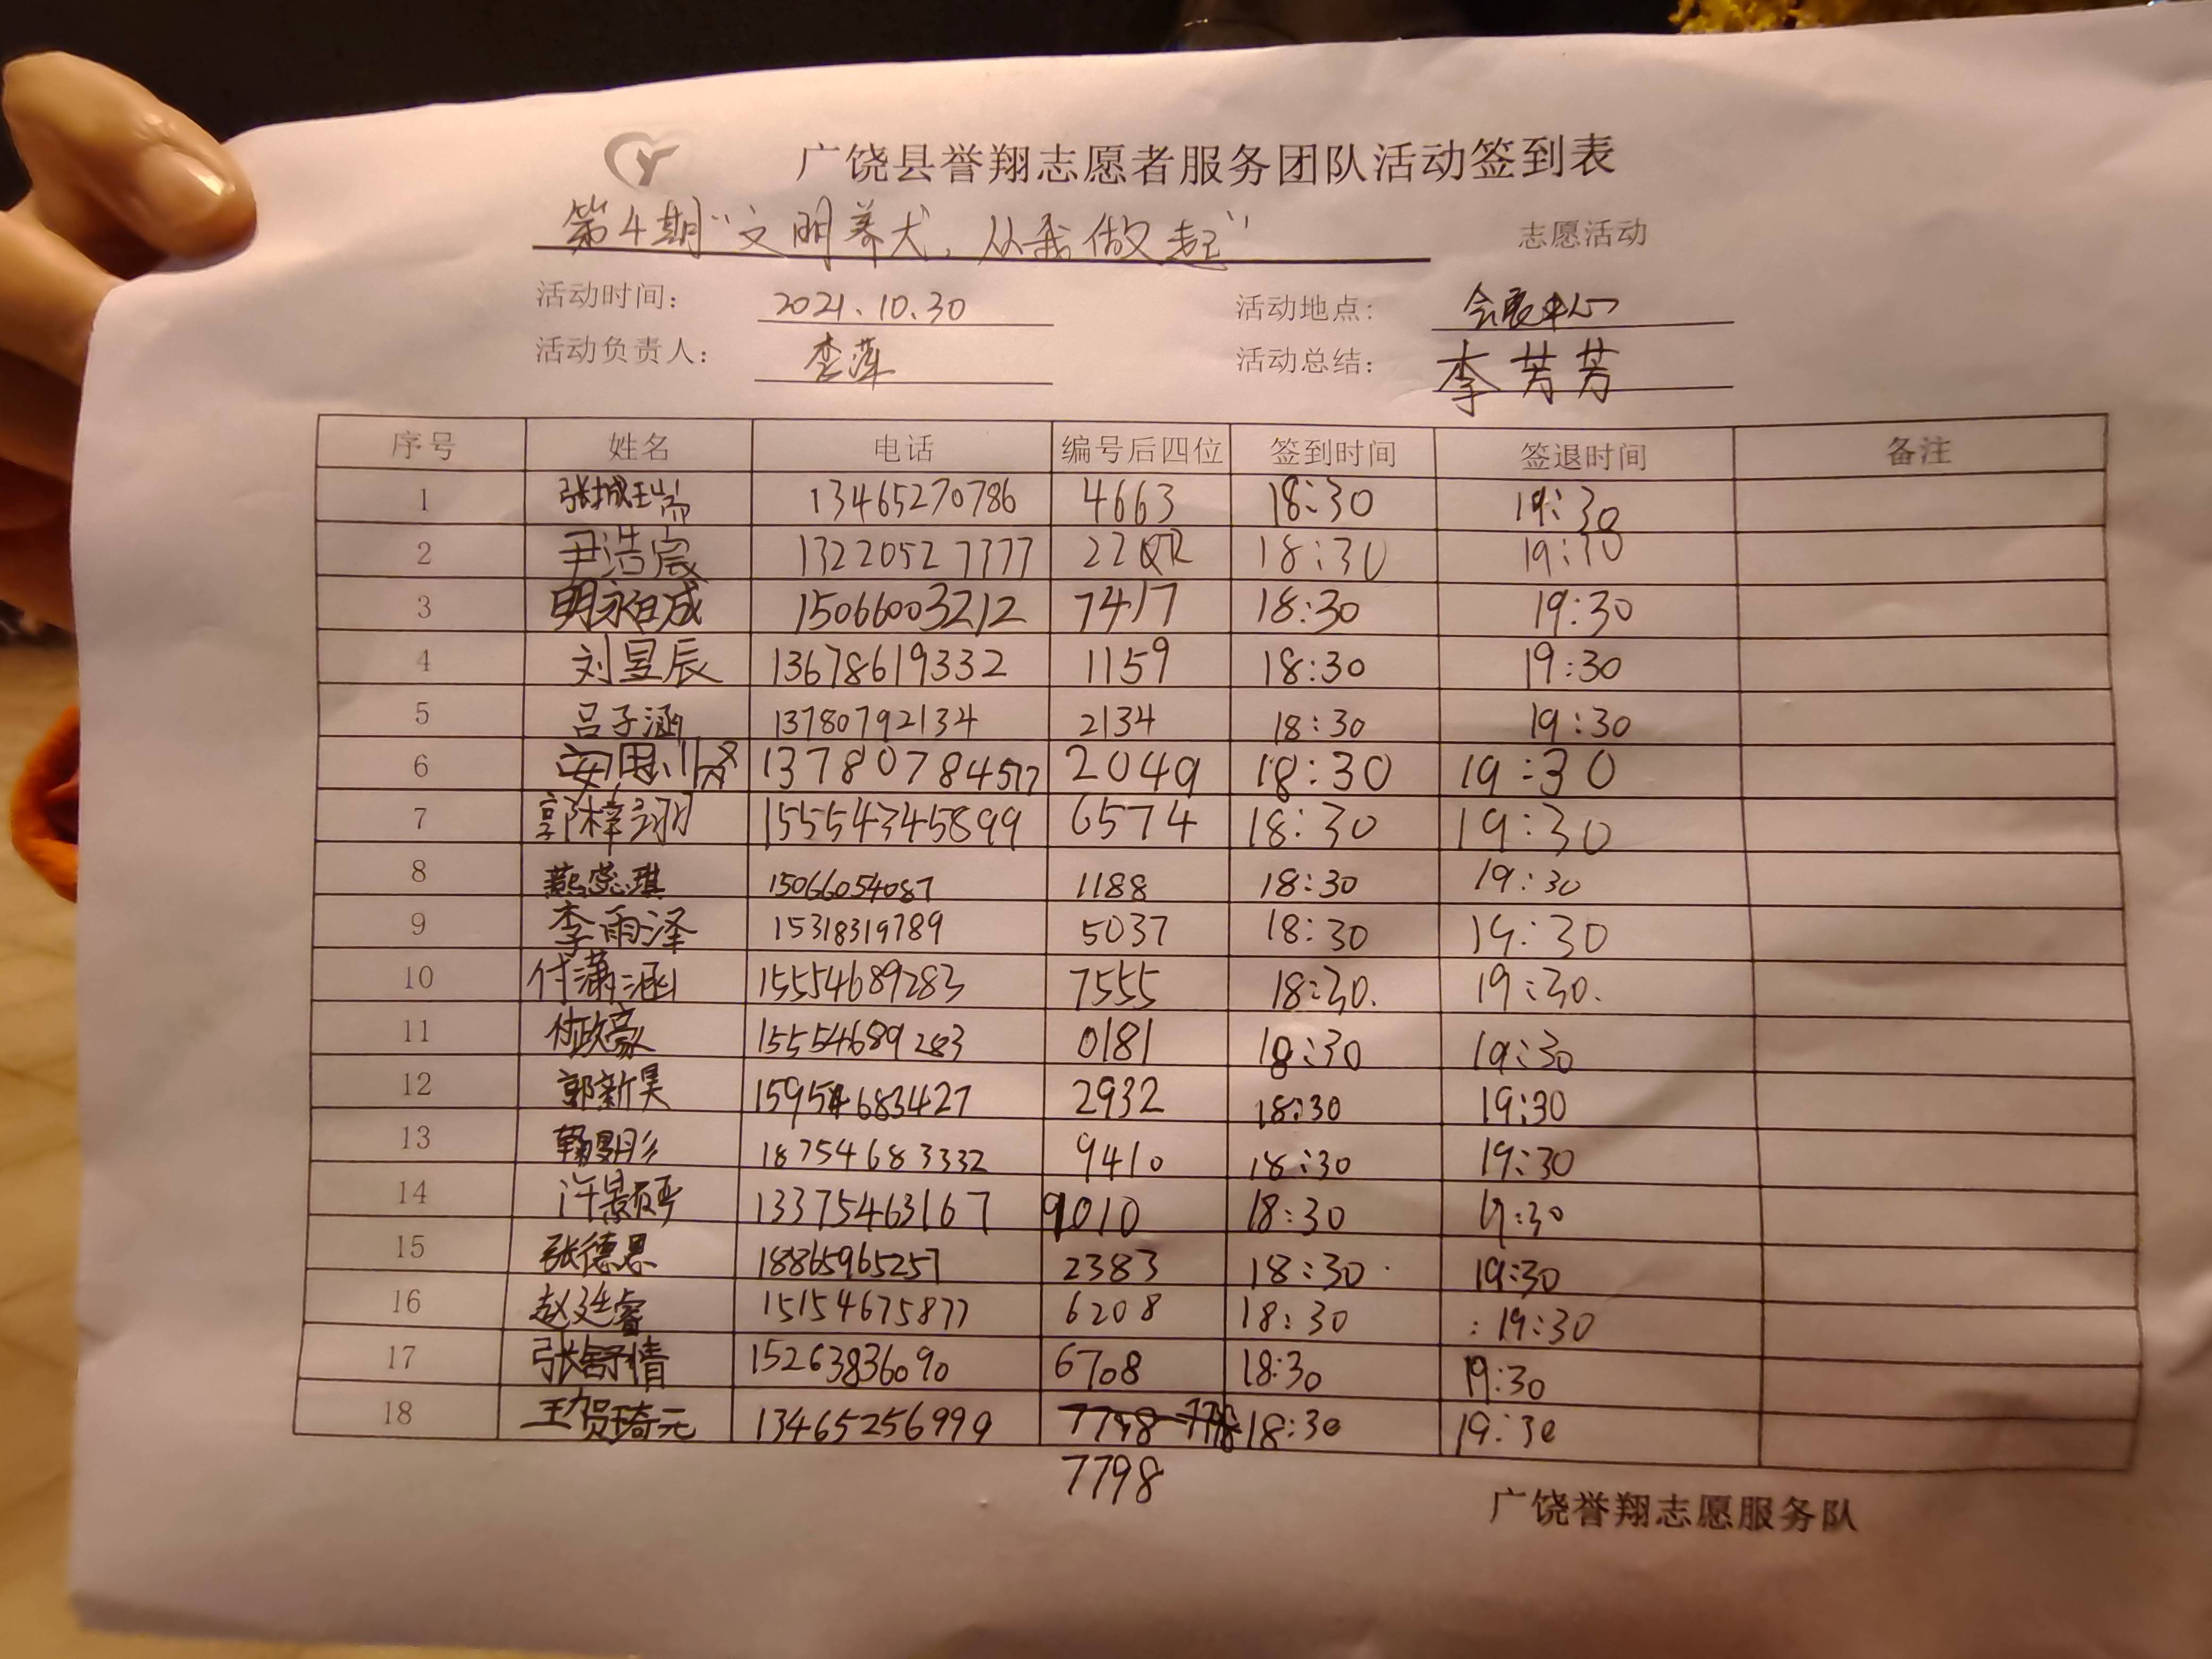 广饶县誉翔志愿者服务团队活动签到表
第4期“文明养犬，从我做起” 志愿活动
活动时间： 2021.10.30 活动地点： 会展中心
活动负责人： 李萍 活动总结： 李芳芳
序号 姓名 电话 编号后四位 签到时间 签退时间 备注
1 张城瑞 13465270786 4663 18:30 19:30
2 尹浩宸 13220527777 22QR 18:30 19:30
3 明永晟 15066003212 7417 18:30 19:30
4 刘昱辰 13678619332 1159 18:30 19:30
5 吕子涵 13780792134 2134 18:30 19:30
6 13780784517 2049 18:30 19:30
7 郭梓翊 155543345899 6574 18:30 19:30
8 燕蕊琪 15066054087 1188 18:30 19:30
9 李雨泽 15318319789 5037 18:30 19:30
10 付潇涵 15554689283 7555 18:30. 19:30.
11 付政豪 15554689283 0181 18:30 19:30
12 郭新昊 15954683427 2932 18:30 19:30
13 18754683332 9410 18:30 19:30
14 许景硕 13375463167 9010 18:30 19:30
15 张德恩 18865965257 2383 18:30 19:30
16 赵廷睿 15154675877 6208 18:30 19:30
17 张舒情 15263836090 6708 18:30 19:30
18 王贺琦元 13465256999 18:30 19:30
7798
广饶誉翔志愿服务队